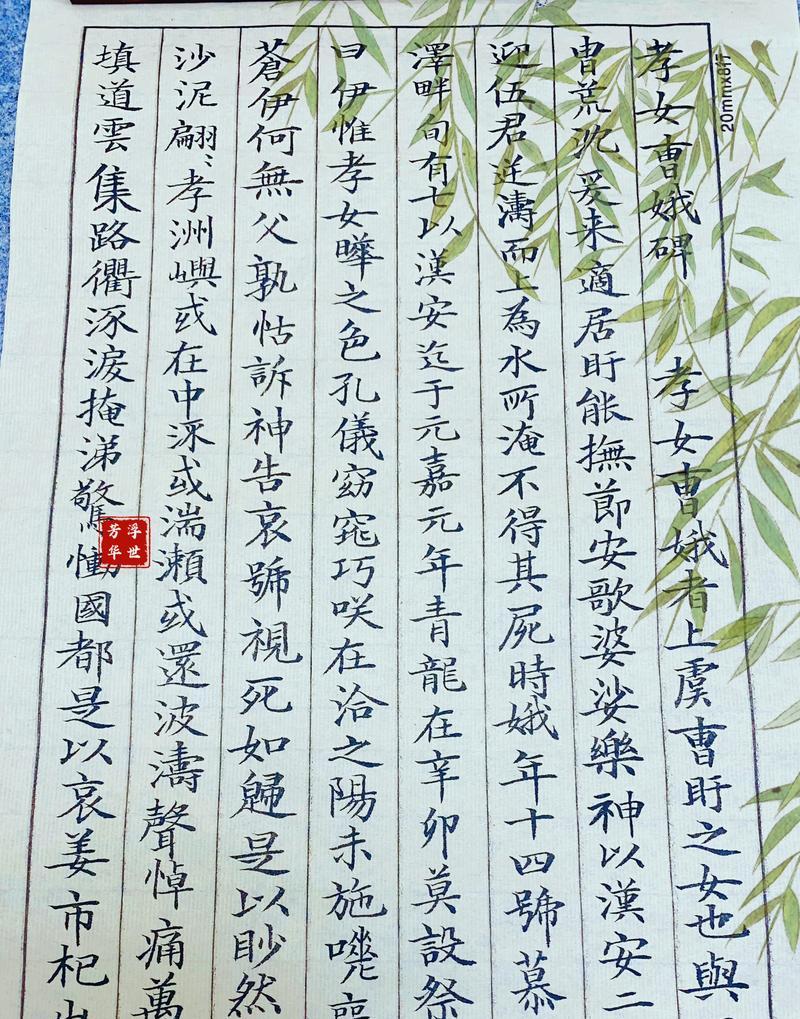 孝女曹娥碑 孝女曹娥者上虞曹盱之女也與
曹荒沉爰来適居盱能撫節安歌婆娑樂神以漢安二
迎伍君逆濤而上為水所淹不得其屍時娥年十四號慕
澤畔旬有七以漢安迄于元嘉元年青龍在辛卯莫設祭
曰伊惟孝女曄之色孔儀窈窕巧咲在洽之陽未施嗟
蒼伊何無父孰怙訴神告哀號視死如歸是以眇然
沙泥翩〻孝洲嶼或在中沠或湍瀬或還波濤聲悼痛萬
填道雲集路衢泳淚掩涕驚慟國都是以哀姜市杞
20mmx8行
浮世芳华